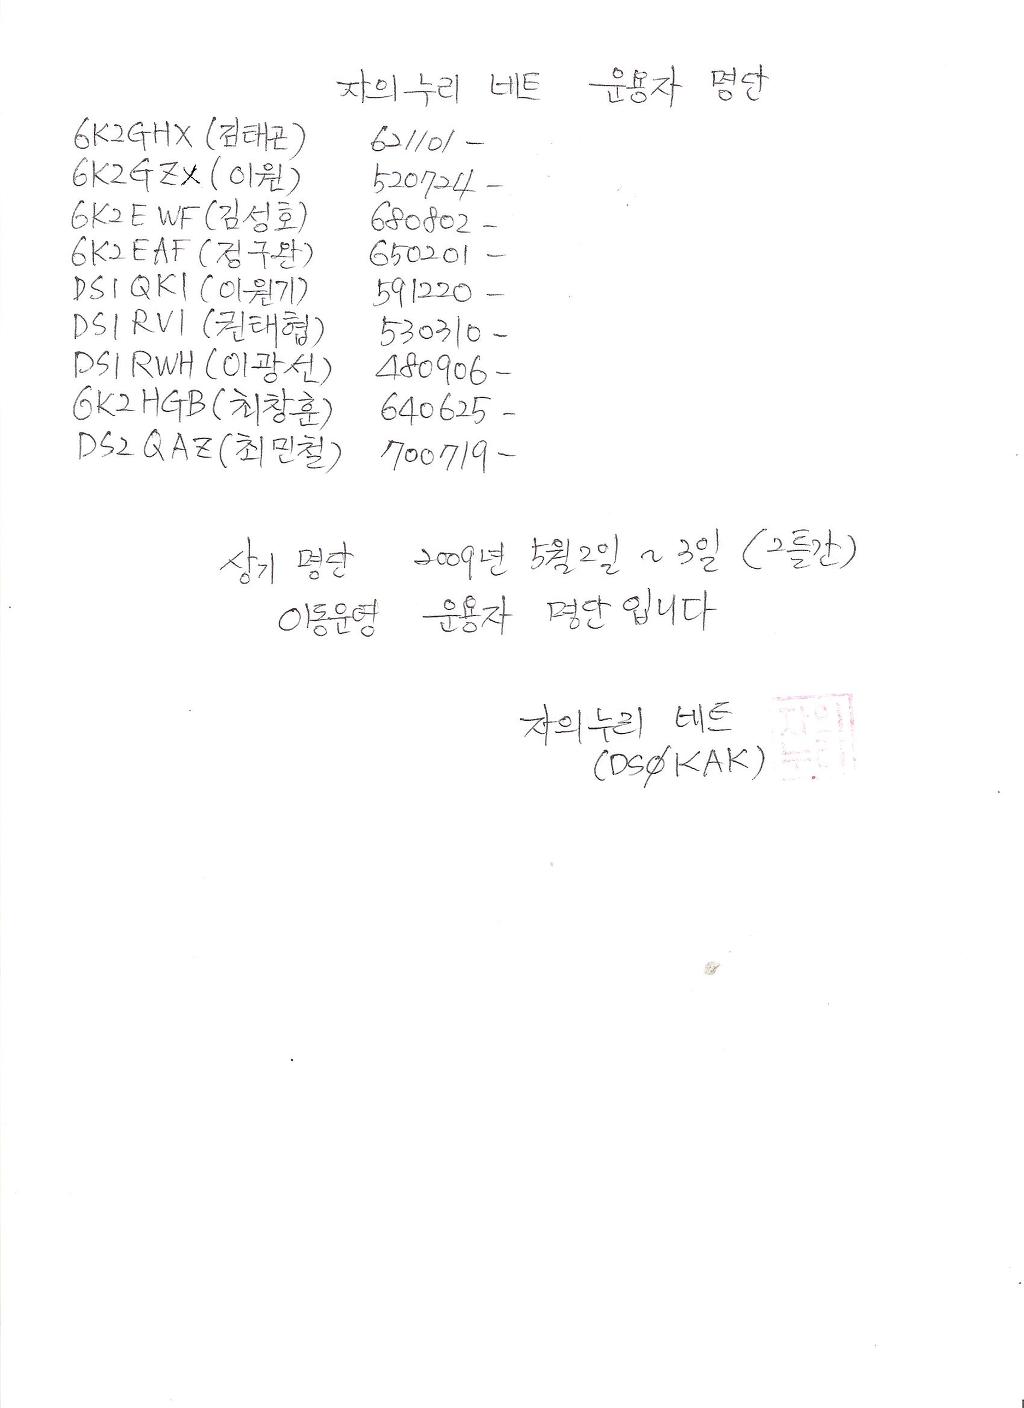 자의누리 네트 운용자 명단
6K2GHX (김태곤) 621101 -
6K2GZX (이원) 520724 -
6K2EWF (김성호) 680802 -
6K2EAF (정구완) 650201 -
DS1QKI (이원기) 591220 -
DS1RVI (권태협) 530310 -
DS1RWH (이광선) 480906 -
6K2HGB (최창훈) 640625 -
DS2QAZ (최민철) 700719 -
상기 명단 2009년 5월2일 ~ 3일 (2틀간)
이동운영 운용자 명단 입니다
자의누리 네트
(DSØKAK)